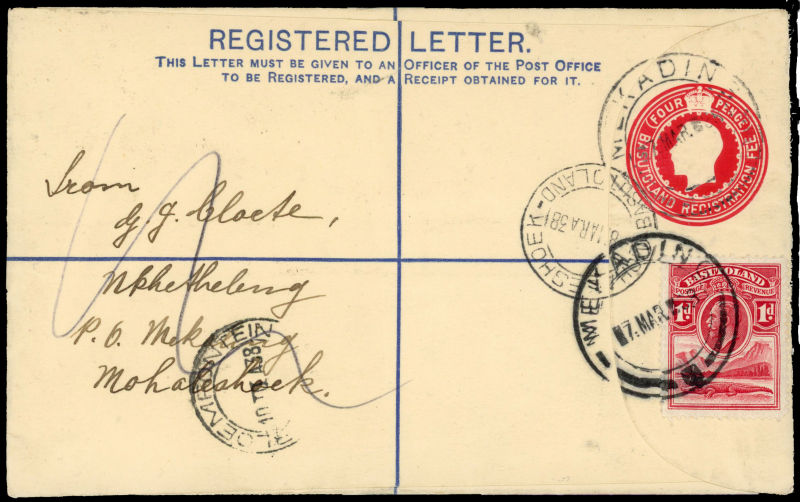 REGISTERED LETTER.
THIS LETTER MUST BE GIVEN TO AN OFFICER OF THE POST OFFICE
TO BE REGISTERED, AND A RECEIPT OBTAINED FOR IT.
MEKADING
MAR
FOUR PENCE
BASUTOLAND REGISTRATION FEE
From
G. J. Cloete,
Nkhetheleng
P. O. Mekading
Mohaleshoek.
ESHOEK-BASUTOLAND
MAR 38
MEKADING
17. MAR.
BASUTOLAND
POSTAGE REVENUE
1d 1d
BLOEMFONTEIN
38